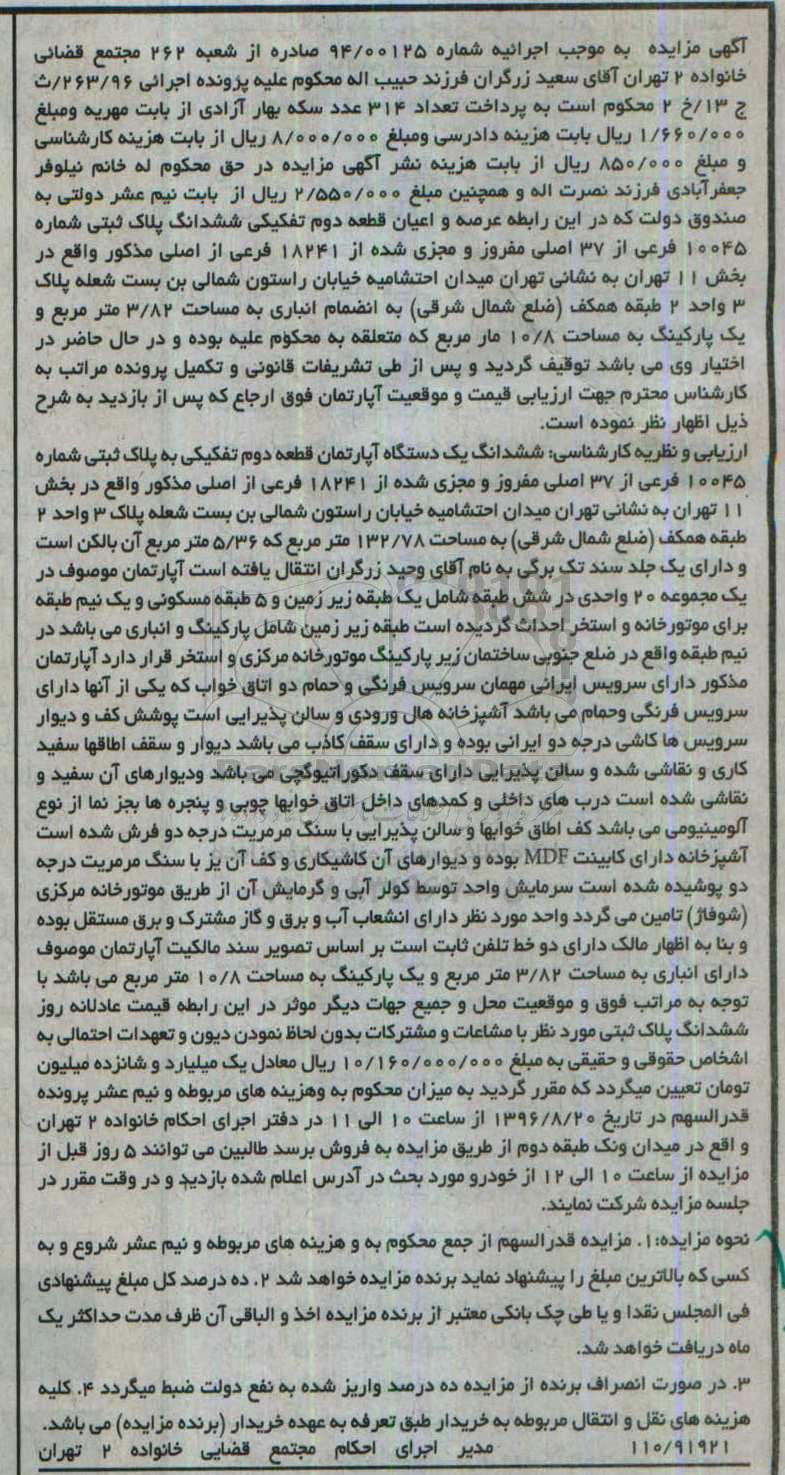 آگهی مزایده به موجب اجرائیه شماره ۹۴/۰۰۱۲۵ صادره از شعبه ۲۶۲ مجتمع قضائی
خانواده ۲ تهران آقای سعید زرگران فرزند حبیب اله محکوم علیه پرونده اجرائی ۲۶۳/۹۶/ث
ج ۱۳/خ ۲ محکوم است به پرداخت تعداد ۳۱۴ عدد سکه بهار آزادی از بابت مهریه ومبلغ
۱/۶۶۰/۰۰۰ ریال بابت هزینه دادرسی ومبلغ ۸/۰۰۰/۰۰۰ ریال از بابت هزینه کارشناسی
و مبلغ ۸۵۰/۰۰۰ ریال از بابت هزینه نشر آگهی مزایده در حق محکوم له خانم نیلوفر
جعفرآبادی فرزند نصرت اله و همچنین مبلغ ۲/۵۵۰/۰۰۰ ریال از بابت نیم عشر دولتی به
صندوق دولت که در این رابطه عرصه و اعیان قطعه دوم تفکیکی ششدانگ پلاک ثبتی شماره
۱۰۰۴۵ فرعی از ۳۷ اصلی مفروز و مجزی شده از ۱۸۲۴۱ فرعی از اصلی مذکور واقع در
بخش ۱۱ تهران به نشانی تهران میدان احتشامیه خیابان راستون شمالی بن بست شعله پلاک
۳ واحد ۲ طبقه همکف (ضلع شمال شرقی) به انضمام انباری به مساحت ۳/۸۲ متر مربع و
یک پارکینگ به مساحت ۱۰/۸ مار مربع که متعلقه به محکوم علیه بوده و در حال حاضر در
اختیار وی می باشد توقیف گردید و پس از طی تشریفات قانونی و تکمیل پرونده مراتب به
کارشناس محترم جهت ارزیابی قیمت و موقعیت آپارتمان فوق ارجاع که پس از بازدید به شرح
ذیل اظهار نظر نموده است.
ارزیابی و نظریه کارشناسی: ششدانگ یک دستگاه آپارتمان قطعه دوم تفکیکی به پلاک ثبتی شماره
۱۰۰۴۵ فرعی از ۳۷ اصلی مفروز و مجزی شده از ۱۸۲۴۱ فرعی از اصلی مذکور واقع در بخش
۱۱ تهران به نشانی تهران میدان احتشامیه خیابان راستون شمالی بن بست شعله پلاک ۳ واحد ۲
طبقه همکف (ضلع شمال شرقی) به مساحت ۱۳۲/۷۸ متر مربع که ۵/۳۶ متر مربع آن بالکن است
و دارای یک جلد سند تک برگی به نام آقای وحید زرگران انتقال یافته است آپارتمان موصوف در
یک مجموعه ۲۰ واحدی در شش طبقه شامل یک طبقه زیر زمین و ۵ طبقه مسکونی و یک نیم طبقه
برای موتورخانه و استخر احداث گردیده است طبقه زیر زمین شامل پارکینگ و انباری می باشد در
نیم طبقه واقع در ضلع جنوبی ساختمان زیر پارکینگ موتورخانه مرکزی و استخر قرار دارد آپارتمان
مذکور دارای سرویس ایرانی مهمان سرویس فرنگی و حمام دو اتاق خواب که یکی از آنها دارای
سرویس فرنگی وحمام می باشد آشپزخانه هال ورودی و سالن پذیرایی است پوشش کف و دیوار
سرویس ها کاشی درجه دو ایرانی بوده و دارای سقف کاذب می باشد دیوار و سقف اطاقها سفید
کاری و نقاشی شده و سالن پذیرایی دارای سقف دکوراتیوگچی می باشد ودیوارهای آن سفید و
نقاشی شده است درب های داخلی و کمدهای داخل اتاق خوابها چوبی و پنجره ها بجز نما از نوع
آلومینیومی می باشد کف اطاق خوابها و سالن پذیرایی با سنگ مرمریت درجه دو فرش شده است
آشپزخانه دارای کابینت MDF بوده و دیوارهای آن کاشیکاری و کف آن یز با سنگ مرمریت درجه
دو پوشیده شده است سرمایش واحد توسط کولر آبی و گرمایش آن از طریق موتورخانه مرکزی
(شوفاژ) تامین می گردد واحد مورد نظر دارای انشعاب آب و برق و گاز مشترک و برق مستقل بوده
و بنا به اظهار مالک دارای دو خط تلفن ثابت است بر اساس تصویر سند مالکیت آپارتمان موصوف
دارای انباری به مساحت ۳/۸۲ متر مربع و یک پارکینگ به مساحت ۱۰/۸ متر مربع می باشد با
توجه به مراتب فوق و موقعیت محل و جمیع جهات دیگر موثر در این رابطه قیمت عادلانه روز
ششدانگ پلاک ثبتی مورد نظر با مشاعات و مشترکات بدون لحاظ نمودن دیون و تعهدات احتمالی به
اشخاص حقوقی و حقیقی به مبلغ ۱۰/۱۶۰/۰۰۰/۰۰۰ ریال معادل یک میلیارد و شانزده میلیون
تومان تعیین میگردد که مقرر گردید به میزان محکوم به وهزینه های مربوطه و نیم عشر پرونده
قدرالسهم در تاریخ ۱۳۹۶/۸/۲۰ از ساعت ۱۰ الی ۱۱ در دفتر اجرای احکام خانواده ۲ تهران
و اقع در میدان ونک طبقه دوم از طریق مزایده به فروش برسد طالبین می توانند ۵ روز قبل از
مزایده از ساعت ۱۰ الی ۱۲ از خودرو مورد بحث در آدرس اعلام شده بازدید و در وقت مقرر در
جلسه مزایده شرکت نمایند.
نحوه مزایده: ۱. مزایده قدرالسهم از جمع محکوم به و هزینه های مربوطه و نیم عشر شروع و به
کسی که بالاترین مبلغ را پیشنهاد نماید برنده مزایده خواهد شد ۲. ده درصد کل مبلغ پیشنهادی
فی المجلس نقدا و یا طی چک بانکی معتبر از برنده مزایده اخذ و الباقی آن ظرف مدت حداکثر یک
ماه دریافت خواهد شد.
۳. در صورت انصراف برنده از مزایده ده درصد واریز شده به نفع دولت ضبط میگردد ۴. کلیه
هزینه های نقل و انتقال مربوطه به خریدار طبق تعرفه به عهده خریدار (برنده مزایده) می باشد.
۱۱۰/۹۱۹۲۱ مدیر اجرای احکام مجتمع قضایی خانواده ۲ تهران